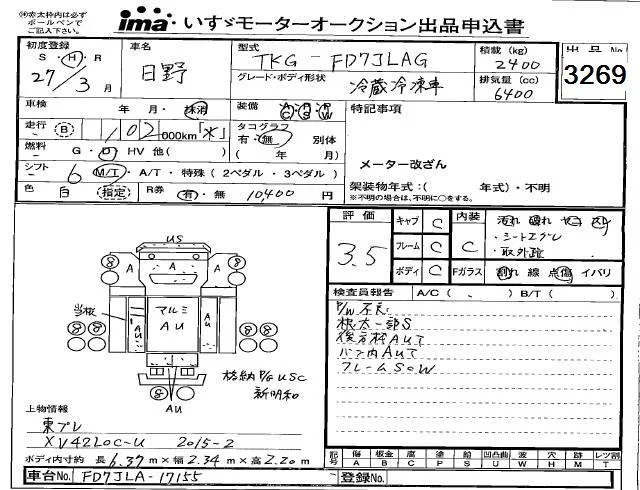 ㊟赤太枠内は必ず
ボールペンで
ご記入下さい。
ima いすゞモーターオークション出品申込書
初度登録
S・H・R
27/3月
車名
日野
型式
TKG-FD7JLAG
グレード・ボディ形状
冷蔵冷凍車
積載(kg)
2400
排気量(cc)
6400
出品No.
3269
車検
年 月・抹消
装備
A/C P/S P/W
走行 B
102 000km「*」
タコグラフ
有・無 別体
( 年 月)
燃料
G・D HV 他( )
シフト
6 M/T・A/T・特殊(2ペダル・3ペダル)
色
白 (指定)
R券
有・無 10,400円
特記事項
メーター改ざん
架装物年式:( 年式)・不明
※不明の場合は、不明に○をする。
評価
3.5
キャブ C
フレーム C
ボディ C
内装
C
Fガラス
汚れ 破れ ヤコゲ
・シートエグレ
・取外跡
割れ 線 点傷 イバリ
検査員報告 A/C( 、 ) B/T( )
P/W不良
後方枠AUて
バン内AUて
フレームSCW
US
A
A
A
A
当板
アルミ
AU
AU
AU
A
AU
格納P/G USC
新明和
上物情報
東プレ
XV42LOC-U 2015-2
ボディ内寸約 長6.37m×幅2.34m×高2.20m
車台No. FD7JLA-17155
登録No.
記号
傷 A
板金 B
腐 C
塗 P
錆 S
凹凸曲 U
波 W
穴 H
跡 X
ミド M
レツ割 T